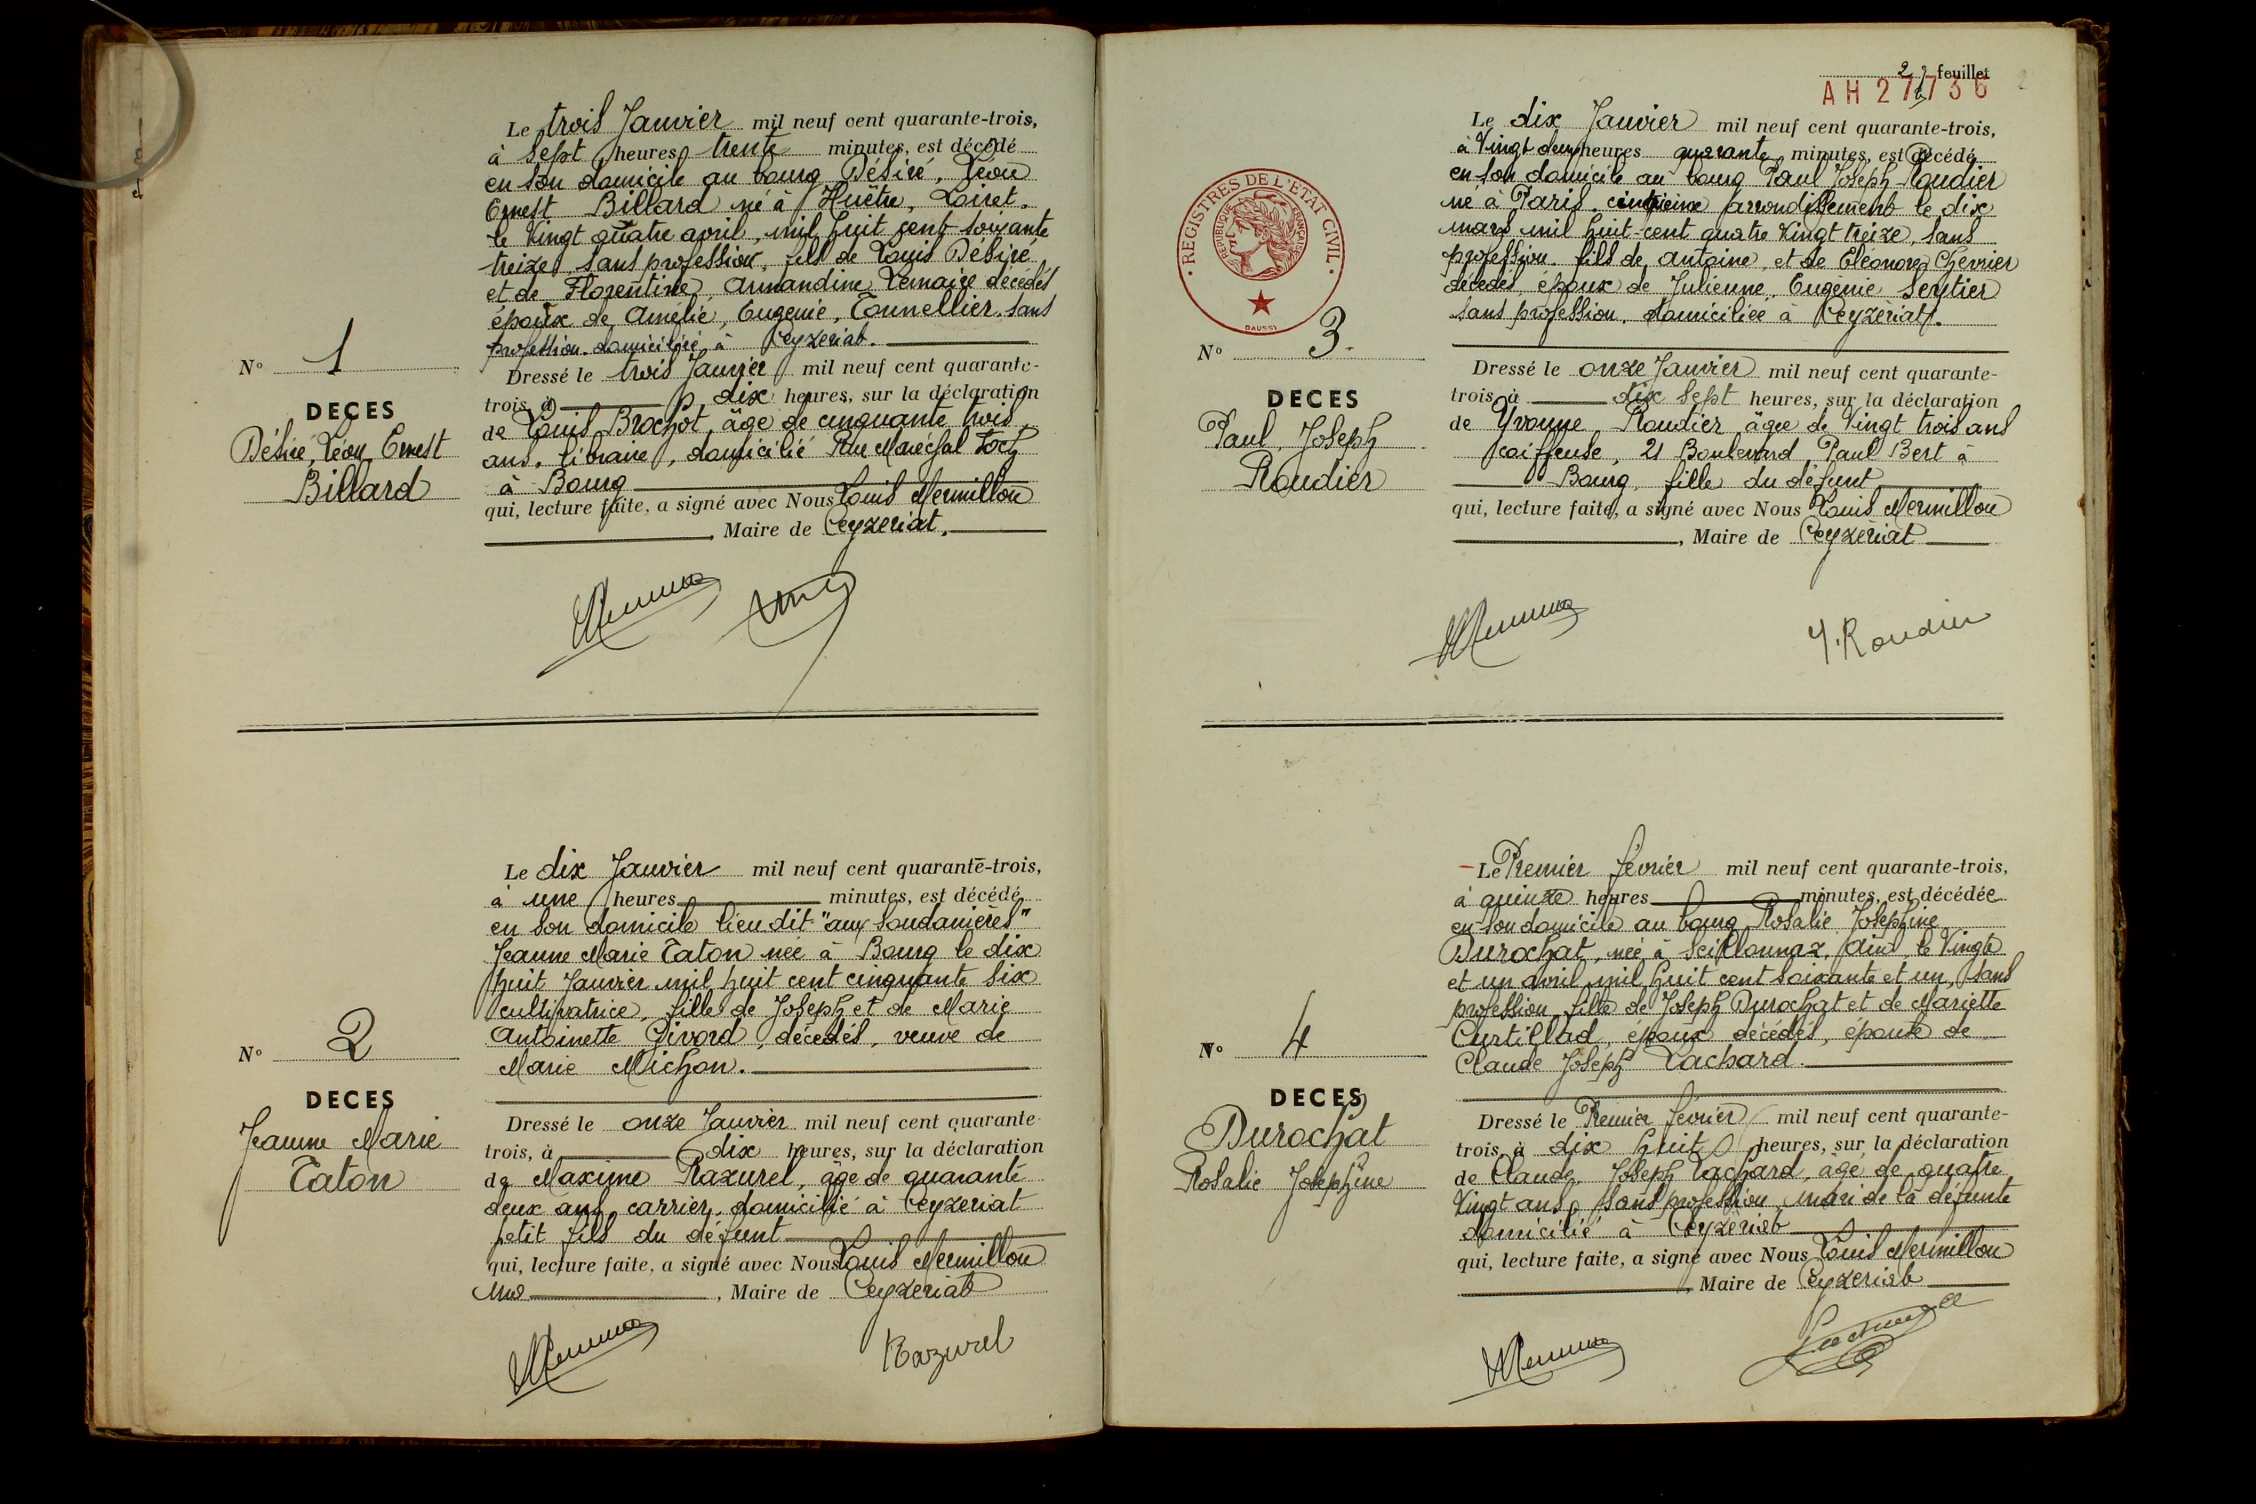 Le trois Janvier mil neuf cent quarante-trois,
à sept heures trente minutes, est décédé
en son domicile au bourg Désiré, Léon
Ernest Billard né à Huêtre, Loiret.
le vingt quatre avril, mil huit cent soixante
treize, sans profession, fils de Louis Désiré
et de Florentine, Armandine Lemaire décédés
époux de Amélie, Eugénie, Tonnellier, sans
profession. domiciliée à Ceyzeriat.
N° 1
DECES
Désiré, Léon, Ernest
Billard
Dressé le trois Janvier mil neuf cent quarante-
trois, à dix heures, sur la déclaration
de Louis Brochot, âgé de cinquante trois
ans, libraire, domicilié Rue Maréchal Foch
à Bourg
qui, lecture faite, a signé avec Nous Louis Mermillon
, Maire de Ceyzeriat.
Le dix Janvier mil neuf cent quarante-trois,
à une heures minutes, est décédé
en son domicile lieu dit "aux Soudanières"
Jeanne Marie Taton née à Bourg le dix
huit Janvier mil huit cent cinquante six
cultivatrice, fille de Joseph et de Marie
Antoinette Givord, décédés, veuve de
Marie Michon.
N° 2
DECES
Jeanne Marie
Taton
Dressé le onze Janvier mil neuf cent quarante-
trois, à dix heures, sur la déclaration
de Maxime Razurel, âgé de quarante
deux ans, carrier, domicilié à Ceyzeriat
petit fils du défunt
qui, lecture faite, a signé avec Nous Louis Mermillon
, Maire de Ceyzeriat
Razurel
2 feuillet
AH 27736
Le dix Janvier mil neuf cent quarante-trois,
à vingt deux heures quarante minutes, est décédé
en son domicile au bourg Paul Joseph Roudier
né à Paris, cinquième arrondissement le dix
mars mil huit-cent quatre vingt treize, sans
profession. fils de Antoine, et de Eléonore Chevrier
décédés, époux de Julienne, Eugénie Seytier
sans profession, domiciliée à Ceyzériat.
REGISTRES DE L'ETAT CIVIL
REPUBLIQUE FRANÇAISE
DAUSSY
N° 3.
DECES
Paul, Joseph
Roudier
Dressé le onze Janvier mil neuf cent quarante-
trois, à dix sept heures, sur la déclaration
de Yvonne Roudier âgée de vingt trois ans
coiffeuse, 21 Boulevard Paul Bert à
Bourg, fille du défunt
qui, lecture faite, a signé avec Nous Louis Mermillon
, Maire de Ceyzériat
Y. Roudier
Le Premier février mil neuf cent quarante-trois,
à quinze heures minutes, est décédée
en son domicile au bourg Rosalie Joséphine
Durochat, née à Seillonnaz, Ain, le vingt
et un avril mil huit cent soixante et un, sans
profession, fille de Joseph Durochat et de Mariette
Curtillad, époux décédés, épouse de
Claude Joseph Lachard.
N° 4
DECES
Durochat
Rosalie Joséphine
Dressé le Premier février mil neuf cent quarante-
trois, à dix huit heures, sur la déclaration
de Claude Joseph Lachard, âgé de quatre
vingt ans, sans profession, mari de la défunte
domicilié à Ceyzériat
qui, lecture faite, a signé avec Nous Louis Mermillon
, Maire de Ceyzeriat